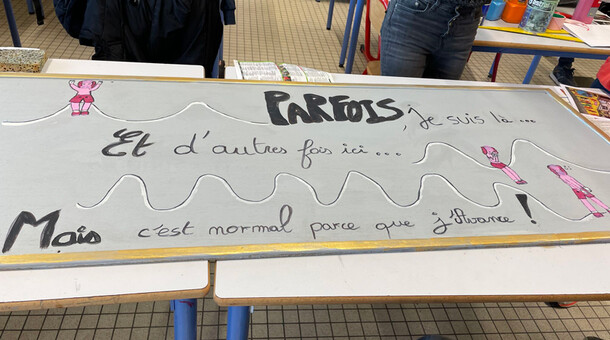 PARFOIS, je suis là...
Et d'autres fois ici...
Mais c'est normal parce que j'Avance !